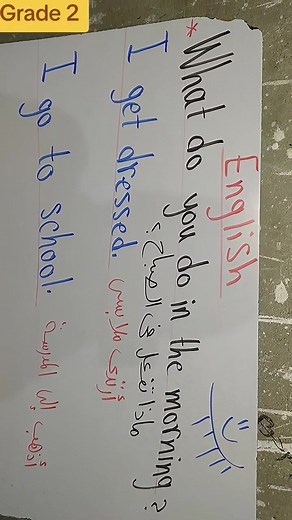 Grade 2
English
* What do you do in the morning?
ماذا تفعل في الصباح؟
I get dressed. أرتدي ملابسي
I go to school. أذهب إلى المدرسة